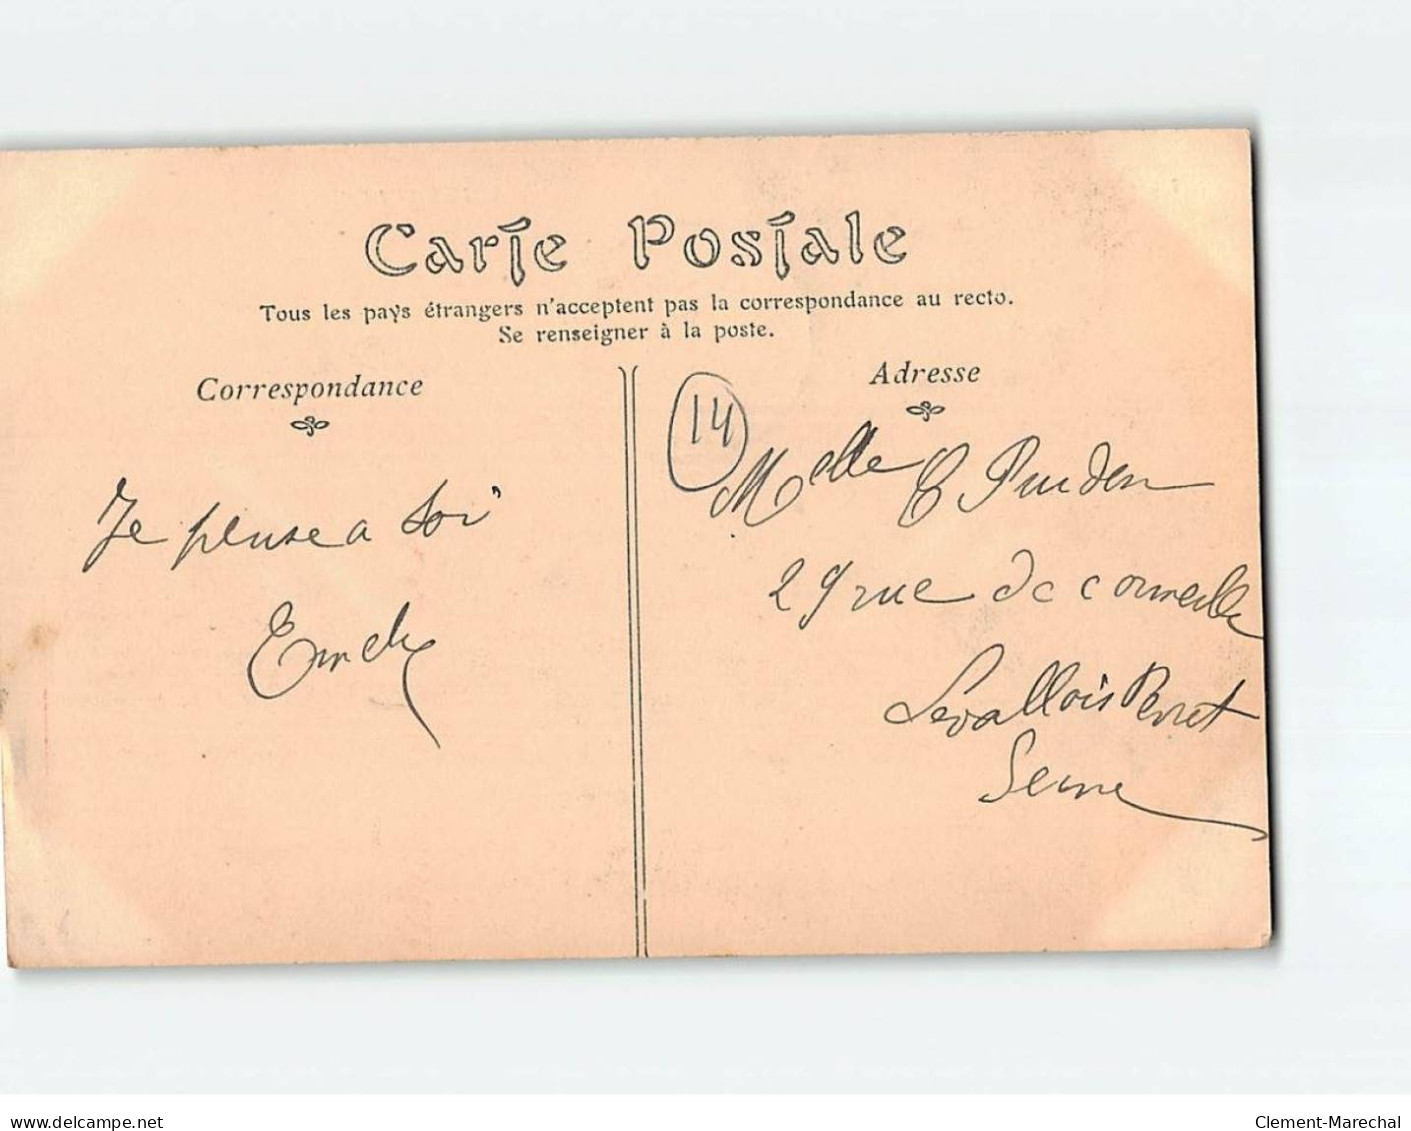 Carte Postale
Tous les pays étrangers n'acceptent pas la correspondance au recto.
Se renseigner à la poste.
Correspondance
Adresse
14
Je pense a toi
Melle
29 rue de Corneille
Levallois Perret
Seine
delcampe.net
Clement-Marechal